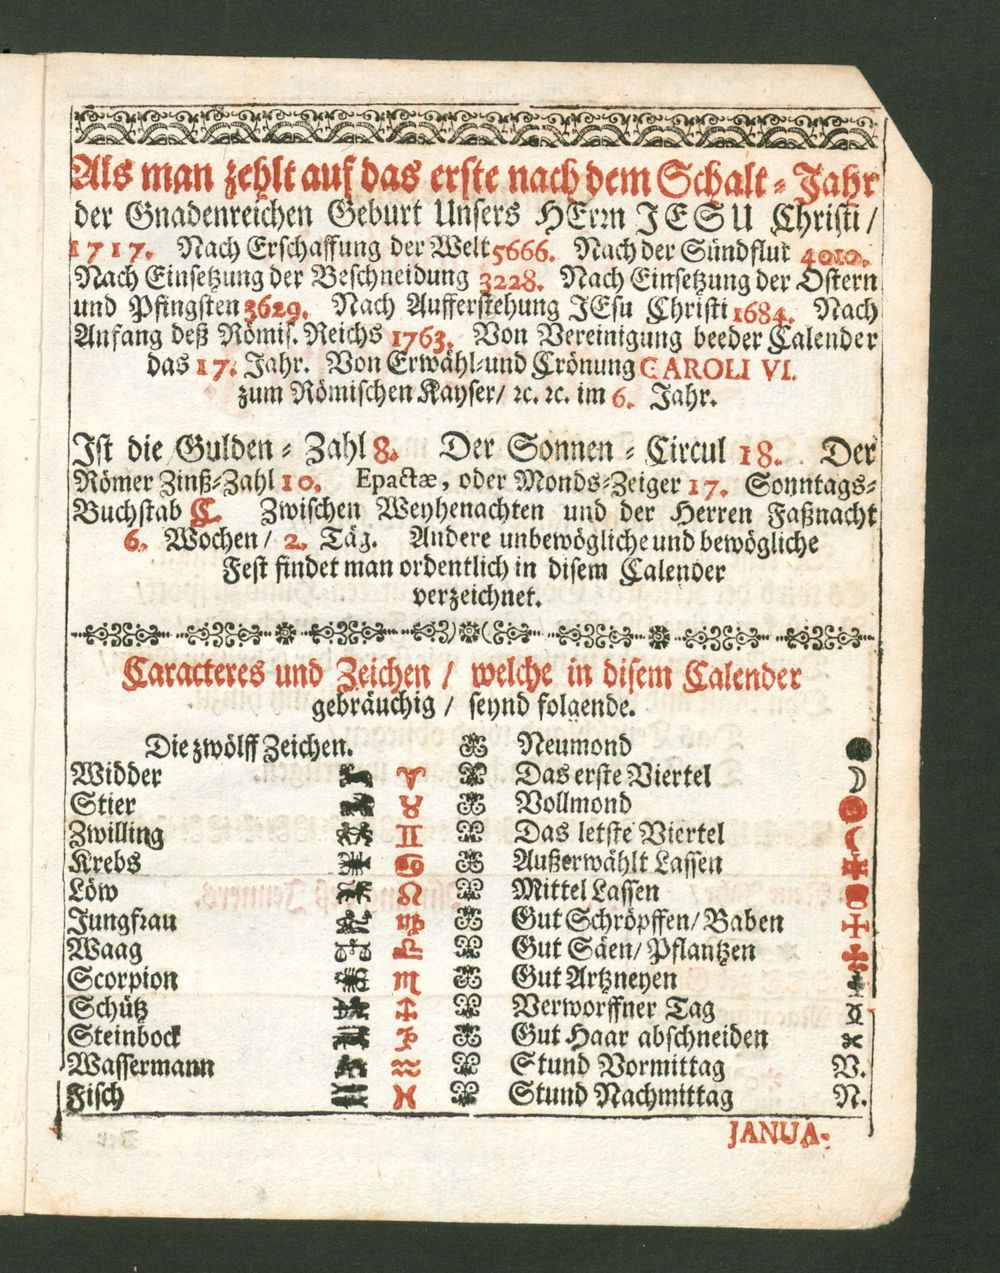 Als man zehlt auf das erste nach dem Schalt-Jahr
der Gnadenreichen Geburt Unsers HErrn JESU Christi /
1717. Nach Erschaffung der Welt 5666. Nach der Sündflut 4010.
Nach Einsetzung der Beschneidung 3228. Nach Einsetzung der Ostern
und Pfingsten 3629. Nach Aufferstehung JEsu Christi 1684. Nach
Anfang deß Römis. Reichs 1763. Von Vereinigung beeder Calender
das 17. Jahr. Von Erwähl- und Crönung CAROLI VI.
zum Römischen Kayser / ꝛc. ꝛc. im 6. Jahr.
Ist die Gulden-Zahl 8. Der Sonnen-Circul 18. Der
Römer Zinß-Zahl 10. Epactæ, oder Monds-Zeiger 17. Sonntags-
Buchstab C. Zwischen Weyhenachten und der Herren Faßnacht
6. Wochen / 2. Täg. Andere unbewögliche und bewögliche
Fest findet man ordentlich in disem Calender
verzeichnet.
Caracteres und Zeichen / welche in disem Calender
gebräuchig / seynd folgende.
Die zwölff Zeichen. Neumond ●
Widder ♈ Das erste Viertel ☽
Stier ♉ Vollmond
Zwilling ♊ Das letste Viertel ☾
Krebs ♋ Außerwählt Lassen
Löw ♌ Mittel Lassen
Jungfrau ♍ Gut Schröpffen / Baden
Waag ♎ Gut Säen / Pflantzen
Scorpion ♏ Gut Artzneyen
Schütz ♐ Verworffner Tag
Steinbock ♑ Gut Haar abschneiden
Wassermann ♒ Stund Vormittag V.
Fisch ♓ Stund Nachmittag N.
JANUA-